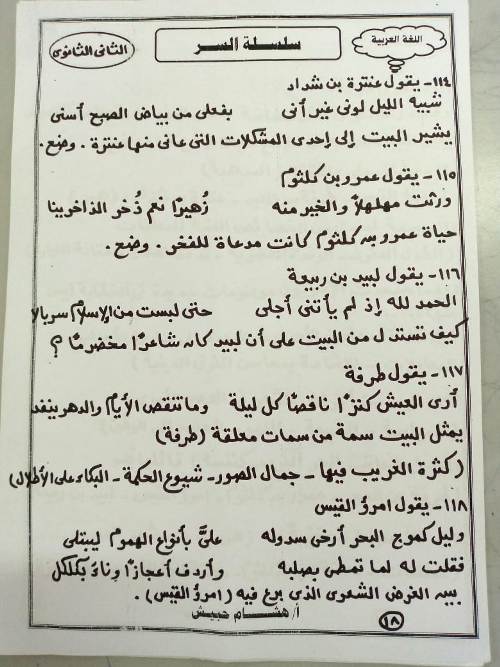 اللغة العربية
سلسلة السر
الثانى الثانوى
١١٤- يقول عنترة بن شداد
شبيه الليل لونى غير أنى    بفعلى من بياض الصبح أسنى
يشير البيت إلى إحدى المشكلات التى عانى منها عنترة . وضح.
١١٥- يقول عمرو بن كلثوم
ورثت مهلهلاً والخير منه    زُهيرًا نعم ذُخر الذاخرينا
حياة عمرو بن كلثوم كانت مدعاة للفخر . وضح.
١١٦- يقول لبيد بن ربيعة
الحمد لله إذ لم يأتنى أجلى    حتى لبست من الإسلام سربالا
كيف تستدل من البيت على أن لبيد كان شاعرًا مخضرمًا ؟
١١٧- يقول طرفة
أرى العيش كنزًا ناقصًا كل ليلة    وما تنقص الأيام والدهر ينفد
يمثل البيت سمة من سمات معلقة (طرفة)
(كثرة الغريب فيها - جمال الصور - شيوع الحكمة - البكاء على الأطلال)
١١٨- يقول امرؤ القيس
وليل كموج البحر أرخى سدوله    علىَّ بأنواع الهموم ليبتلى
فقلت له لما تمطى بصلبه    وأردف أعجازًا وناءَ بكلكل
بين الغرض الشعرى الذى برع فيه (امرؤ القيس) .
أ/ هشام حبيش
١٨